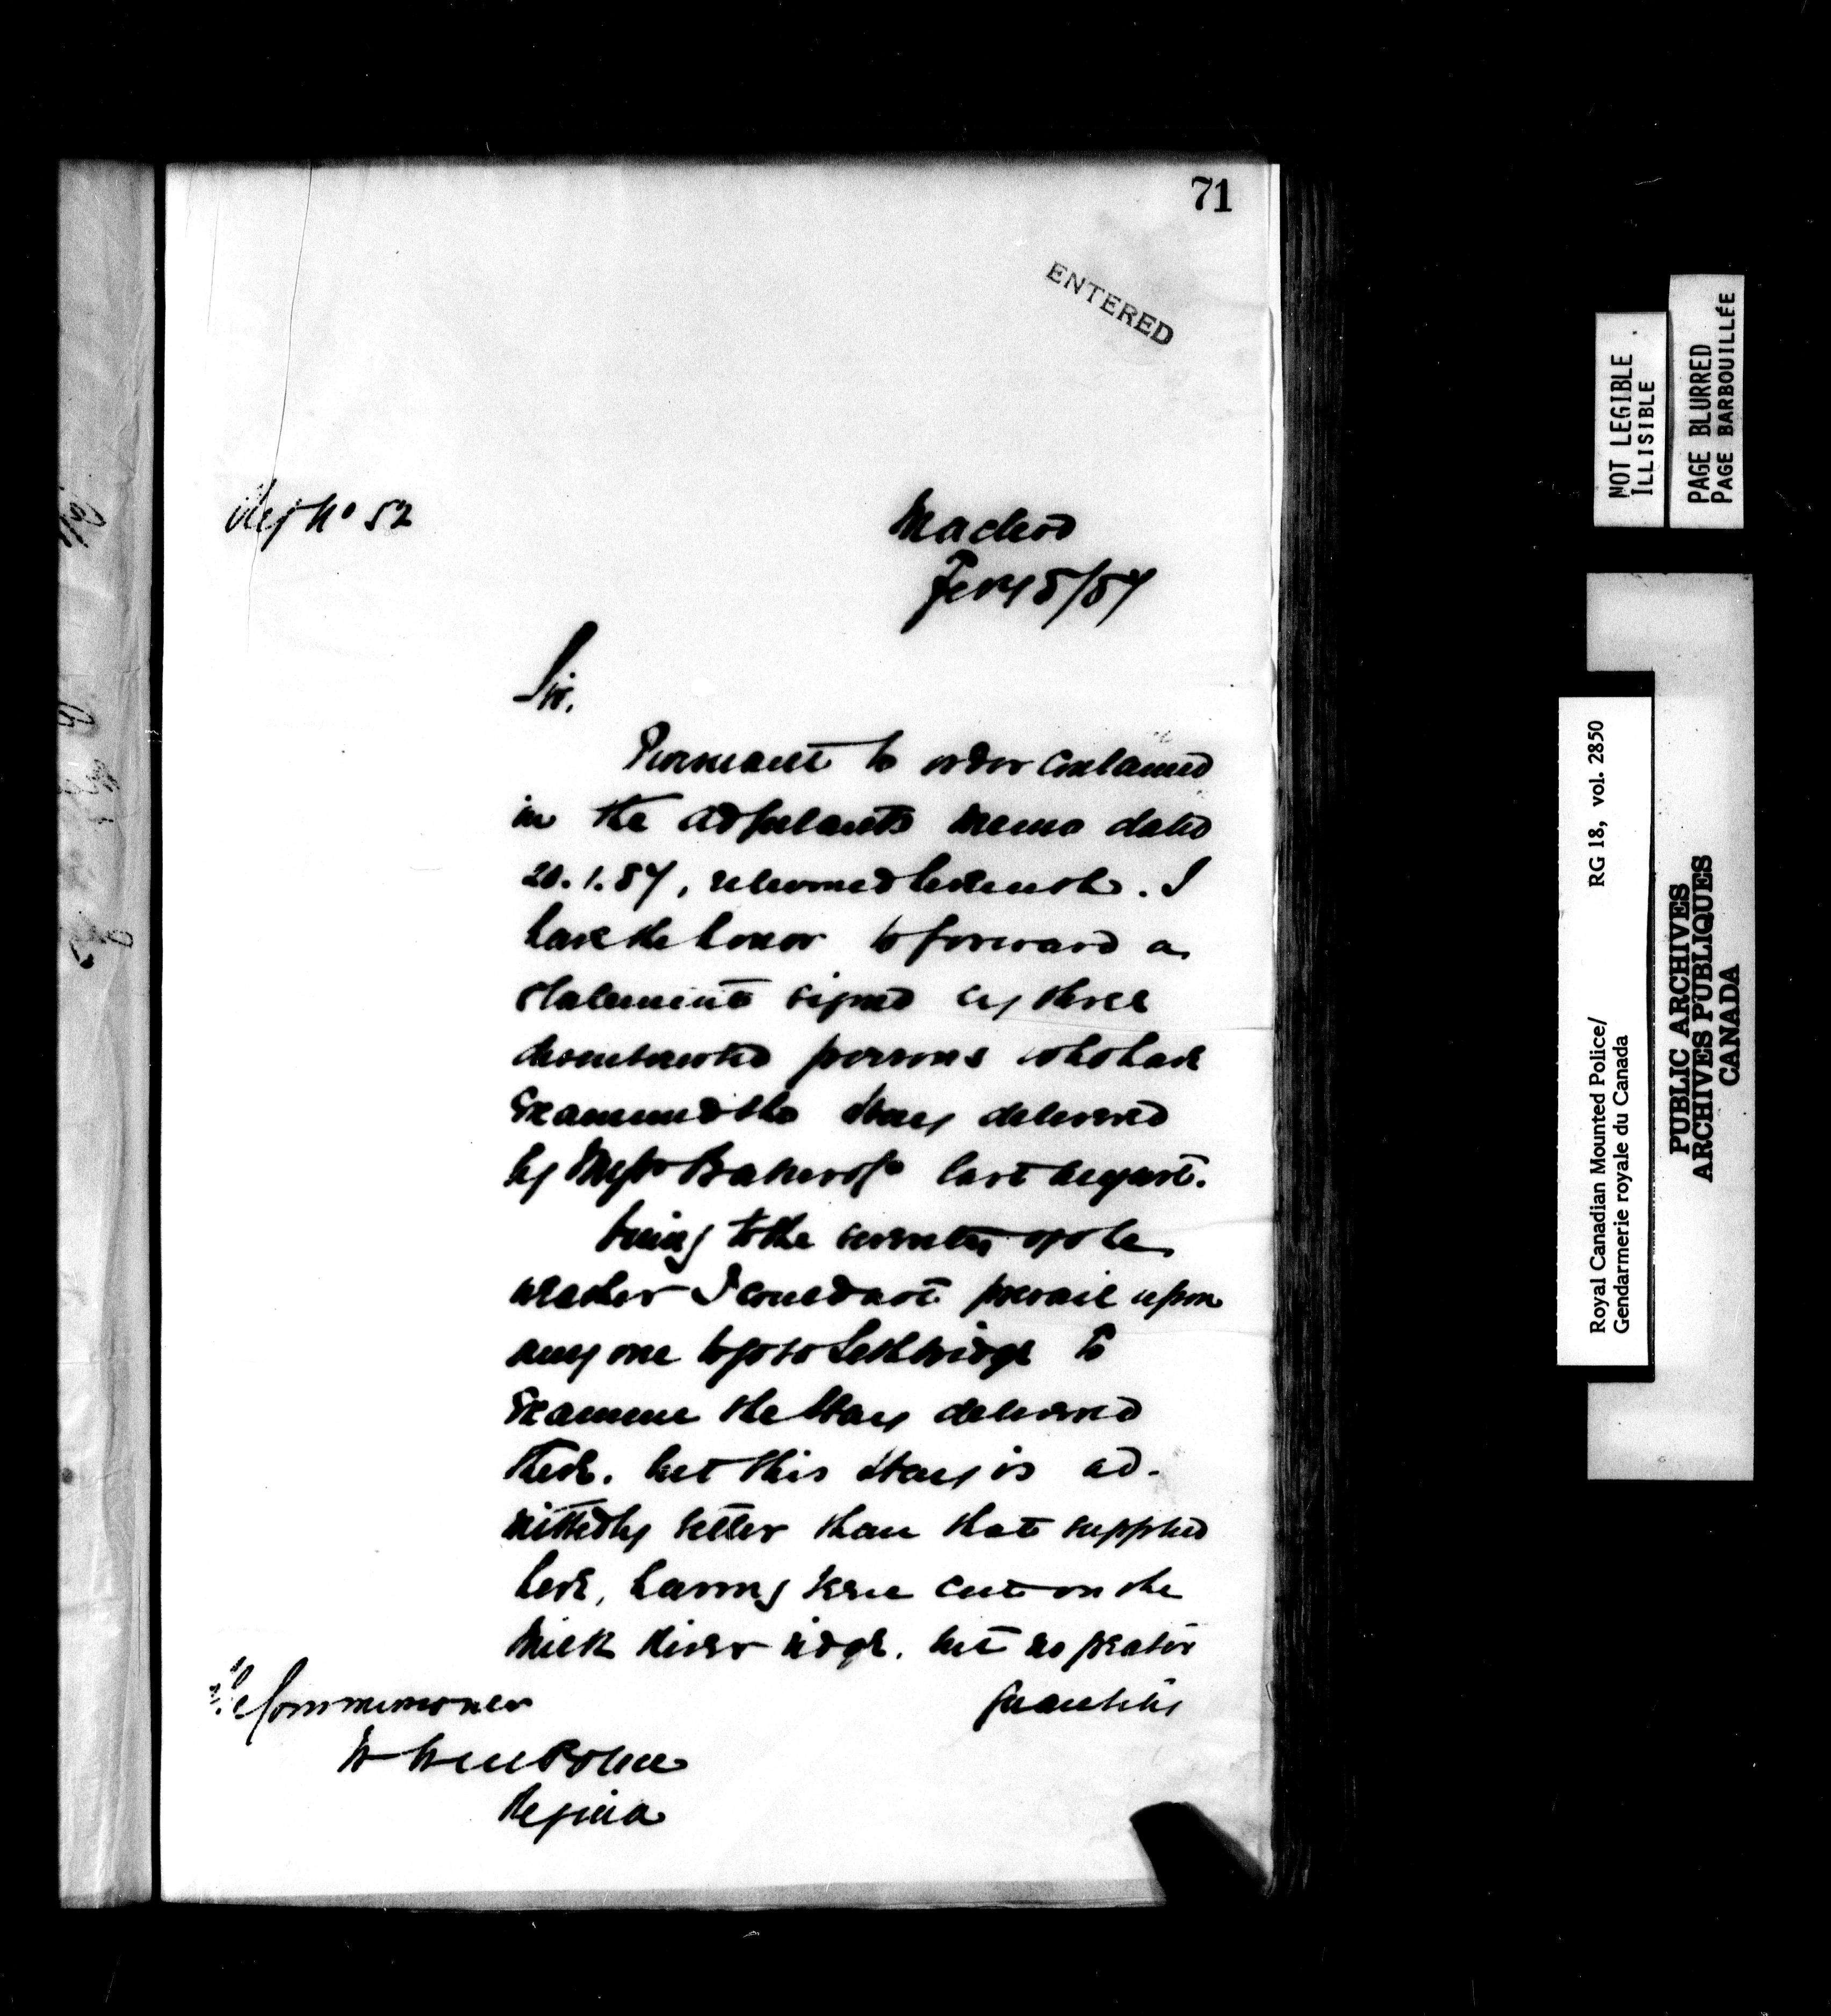 71
ENTERED
Ref No 52
Macleod
Feby 5/87
Sir,
Pursuant to order contained
in the Adjutants memo dated
20.1.87, returned herewith. I
have the honor to forward a
statement signed by three
disinterested persons who have
examined the Hay delivered
by Messrs Baker & Co last August.
Owing to the severity of the
weather I could not prevail upon
any one to go to Lethbridge to
examine the Hay delivered
there. but this Hay is ad-
mittedly better than that supplied
here, having been cut on the
Milk River ridge. but no greater
quantities
The Commissioner
N W M Police
Regina
NOT LEGIBLE
ILLISIBLE
PAGE BLURRED
PAGE BARBOUILLÉE
Royal Canadian Mounted Police/ RG 18, vol. 2850
Gendarmerie royale du Canada
PUBLIC ARCHIVES
ARCHIVES PUBLIQUES
CANADA